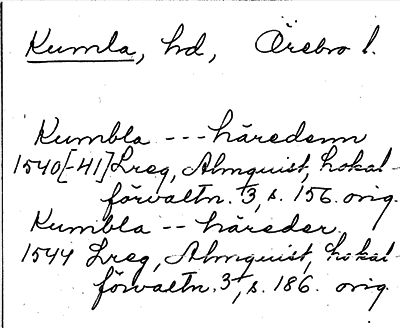 Kumla, hd, Örebro l.
Kumbla --- häredenn
1540[-41] Lreg, Almquist, Lokal-
förvaltn. 3, s. 156. orig.
Kumbla -- häreder
1544 Lreg, Almquist, Lokal-
förvaltn. 3, s. 186. orig.